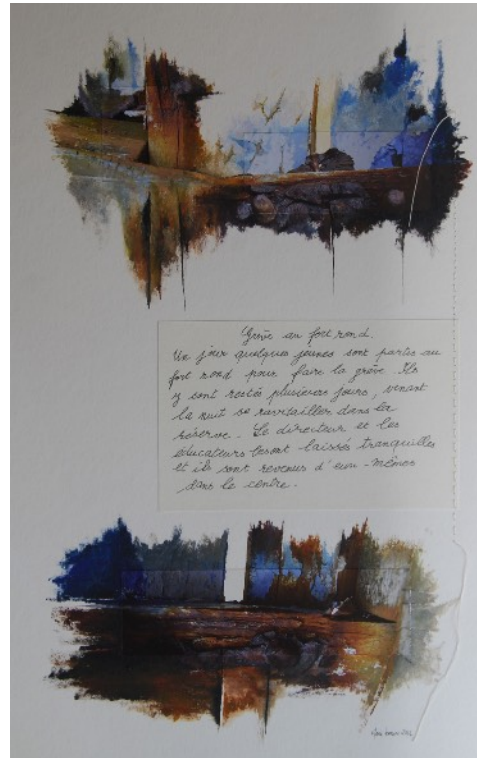 Grève au fort rond.
Un jour quelques jeunes sont partis au
fort rond pour faire la grève. Ils
y sont restés plusieurs jours, venant
la nuit se ravitailler dans la
réserve. Le directeur et les
éducateurs les ont laissés tranquilles
et ils sont revenus d'eux-mêmes
dans le centre.